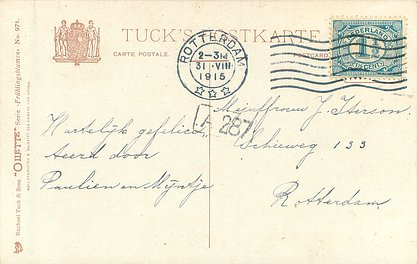 TUCK'S POSTKARTE
CARTE POSTALE.
POSTCARD
ROTTERDAM
2-3N
31.VIII
1915
NEDERLAND
1½
CENT
A 287
Mejuffrouw J. Iterson.
Schieweg 133
Rotterdam.
Hartelijk gefelici-
teerd door
Paulien en Mijntje
Raphael Tuck & Sons "OILETTE" Serie «Frühlingsblumen» No. 971.